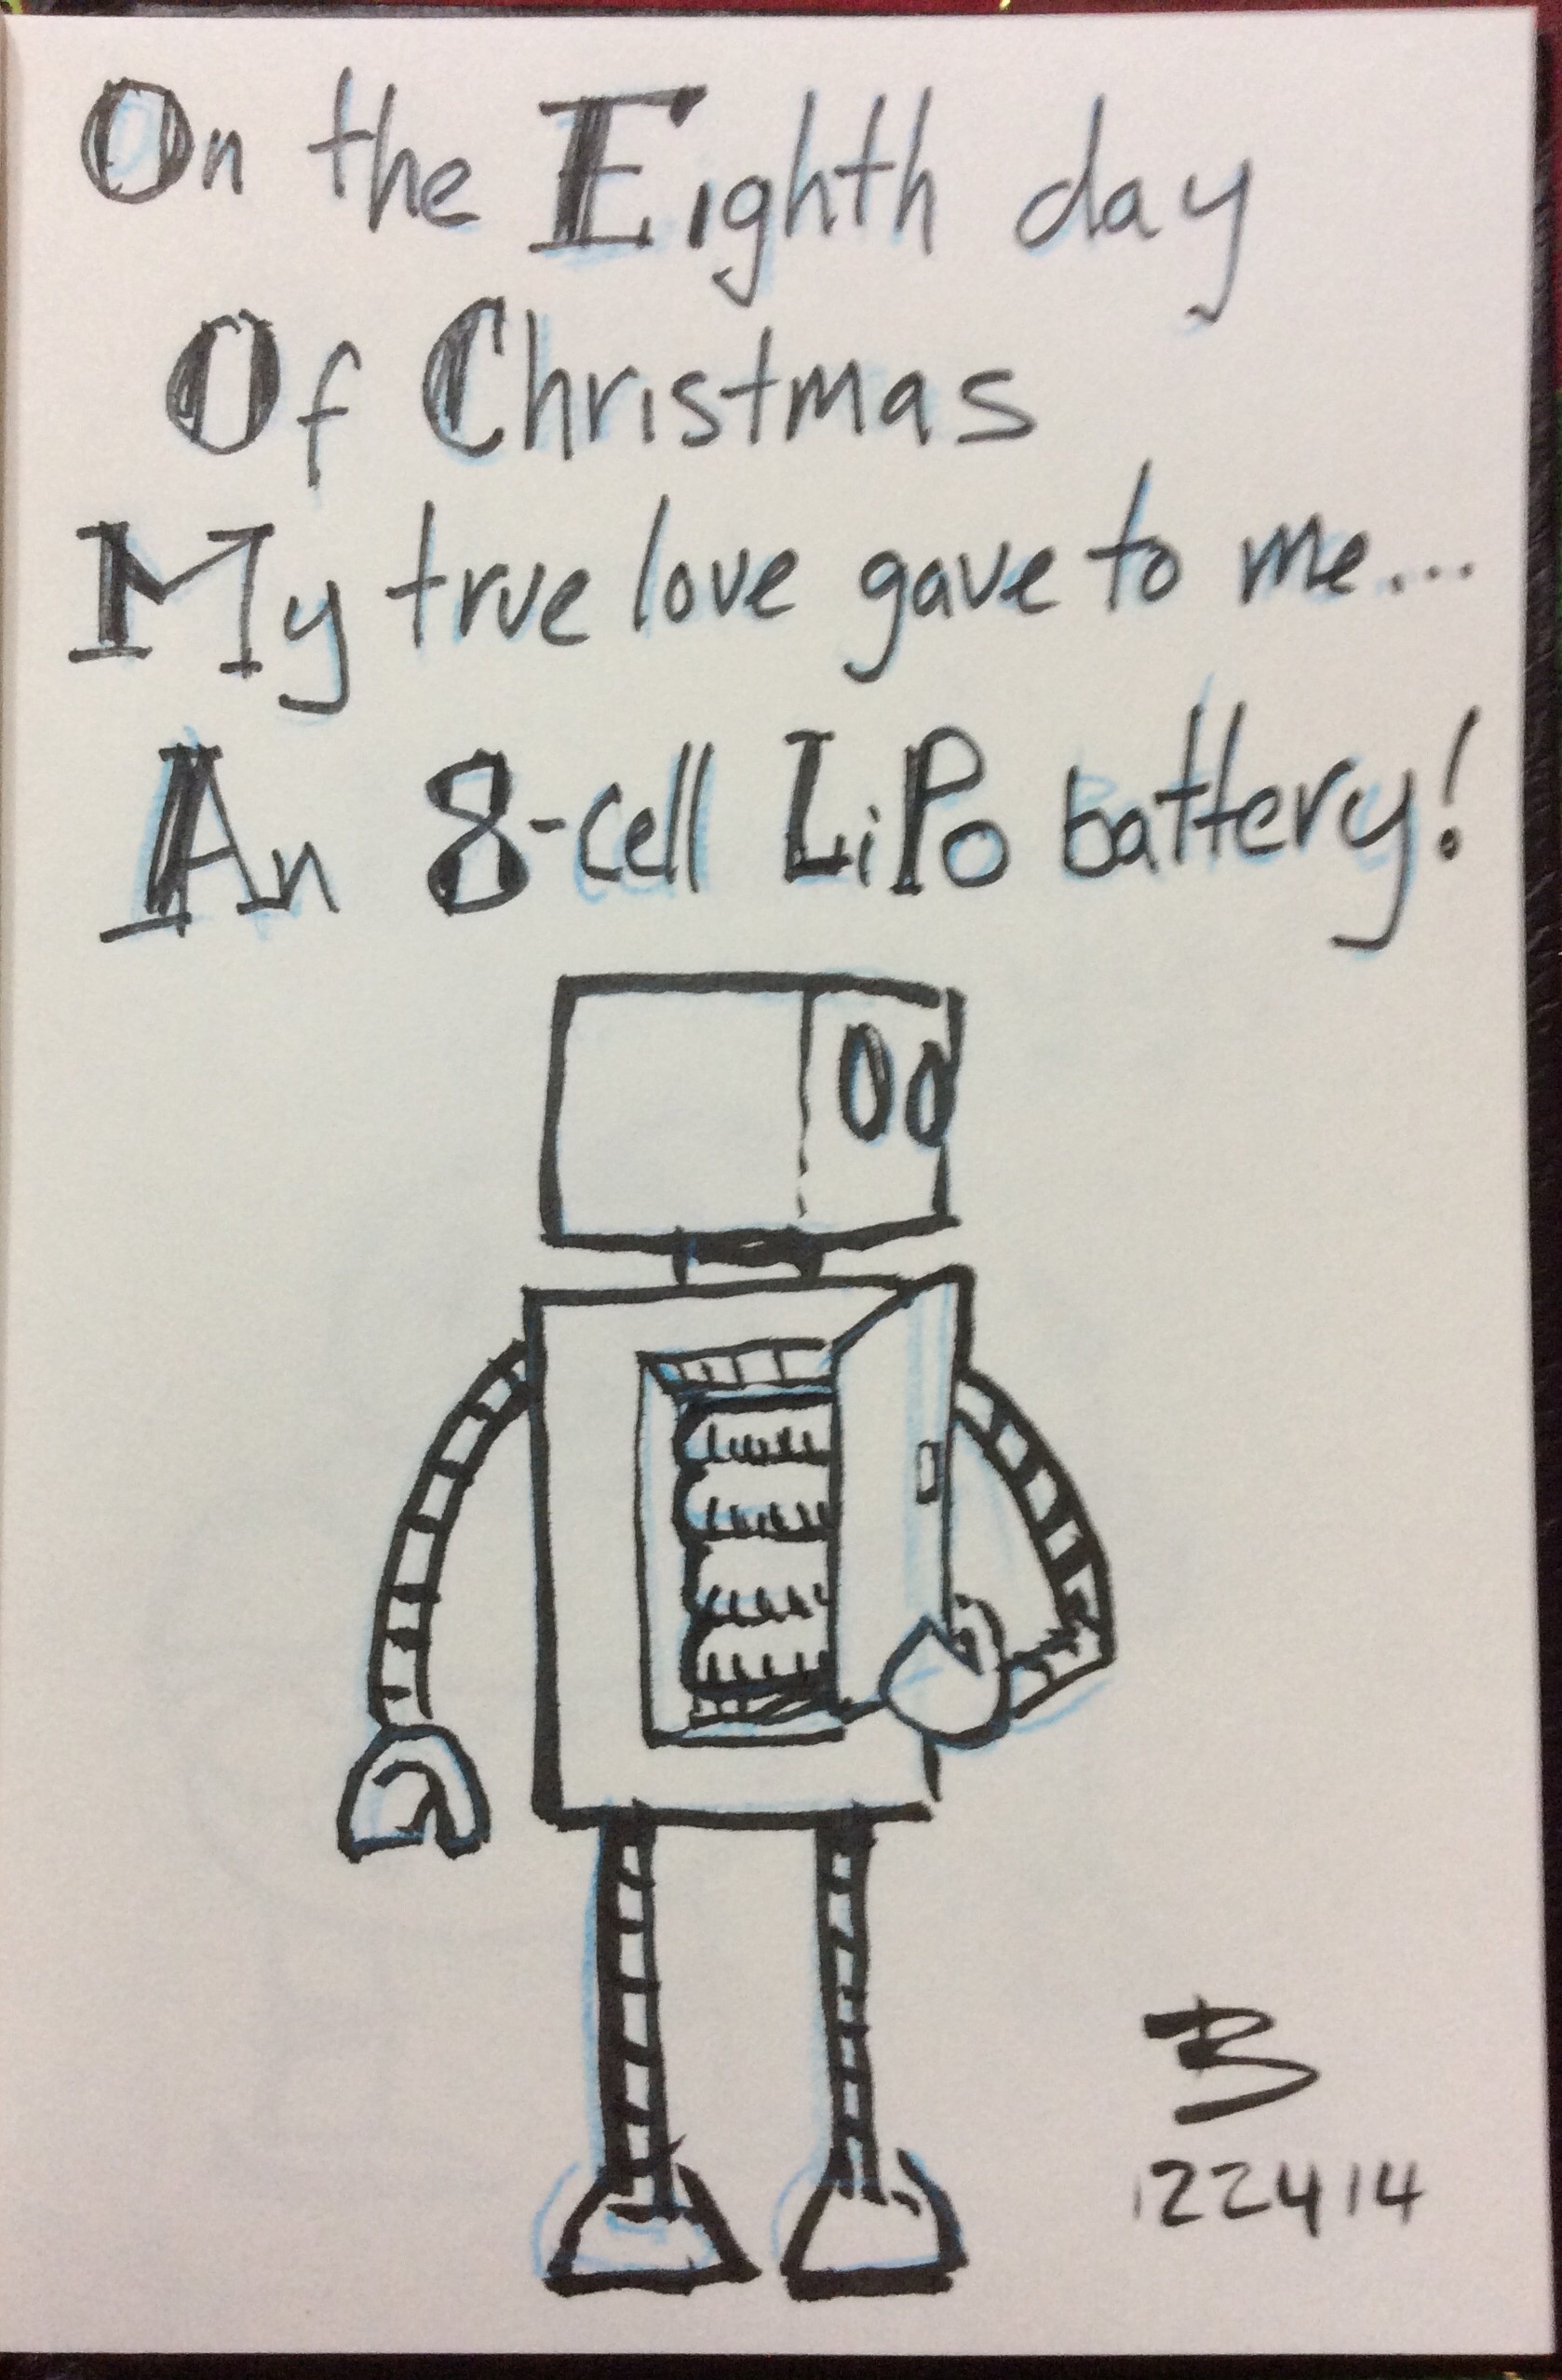 On the Eighth day
Of Christmas
My true love gave to me...
An 8-cell LiPo battery!
B
122414